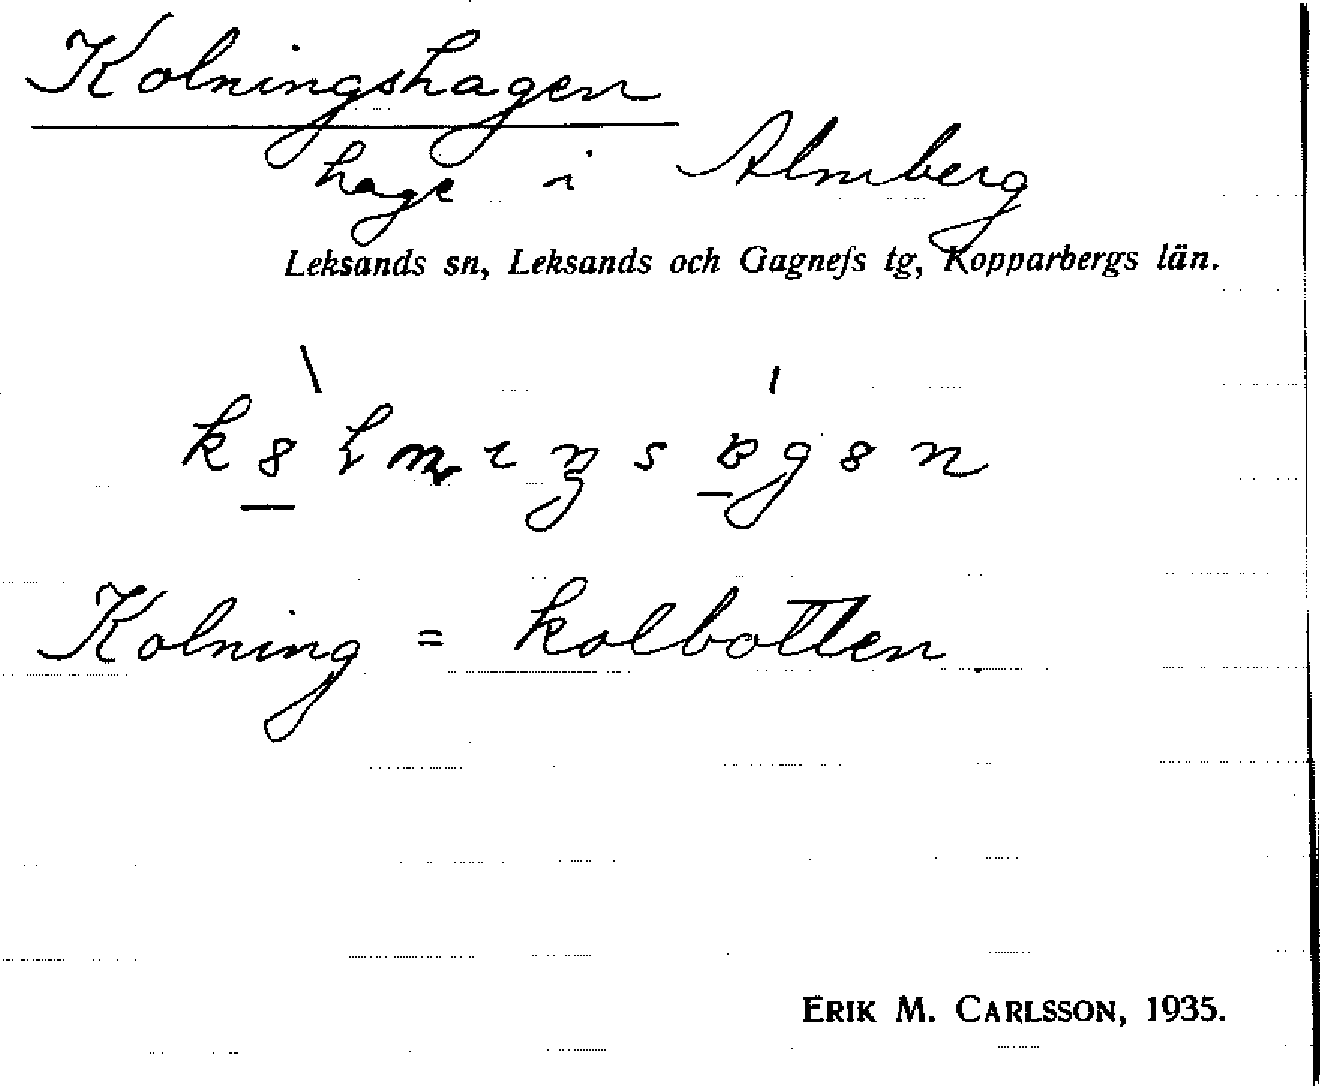 Kolningshagen
hage i Almberg
Leksands sn, Leksands och Gagnefs tg, Kopparbergs län.
Kolning = kolbotten
ERIK M. CARLSSON, 1935.